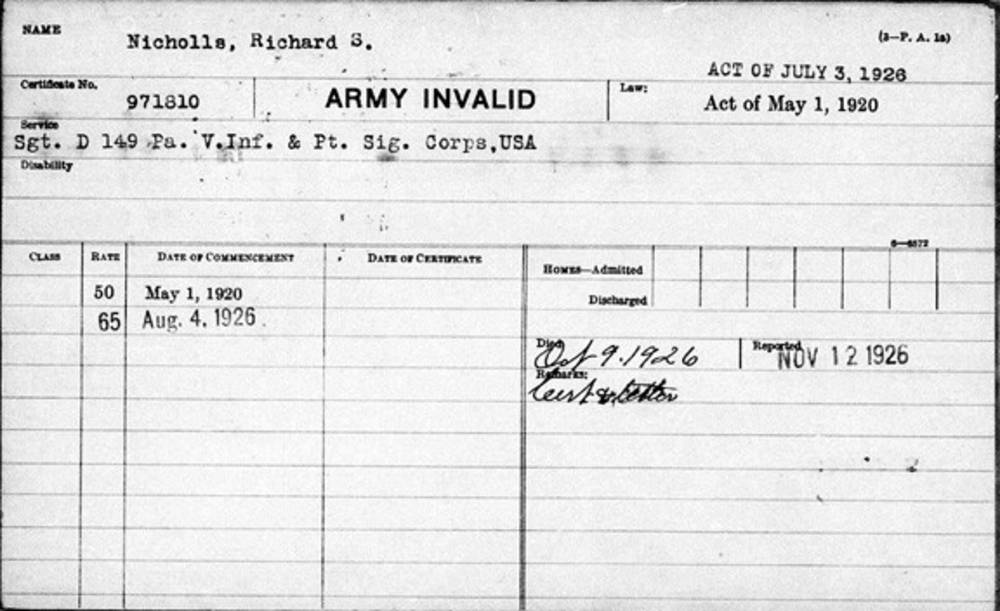 NAME
Nicholls, Richard S.
(3—P. A. 1a)
ACT OF JULY 3, 1926
Certificate No.
971810
ARMY INVALID
Law:
Act of May 1, 1920
Service
Sgt. D 149 Pa. V.Inf. & Pt. Sig. Corps,USA
Disability
CLASS RATE DATE OF COMMENCEMENT DATE OF CERTIFICATE
HOMES—Admitted
Discharged
50 May 1, 1920
65 Aug. 4. 1926
Died
Oct 9. 1926
Reported
NOV 12 1926
Remarks:
letter